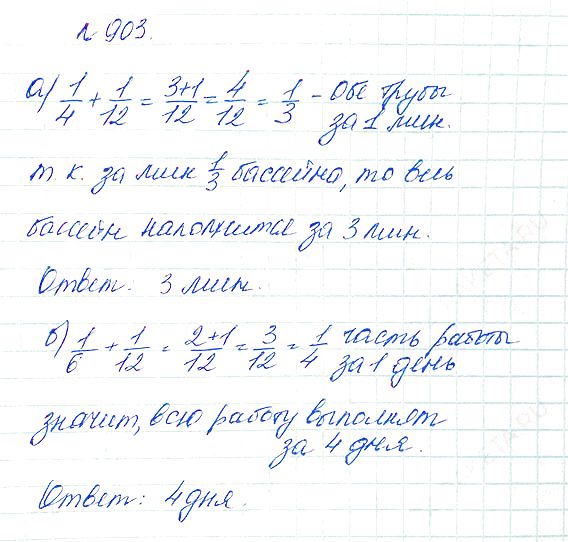 № 903.
а) 1/4 + 1/12 = 3+1/12 = 4/12 = 1/3 – Обе трубы
за 1 мин.
т к. за мин 1/3 бассейна, то весь
бассейн наполнится за 3 мин.
Ответ: 3 мин.
б) 1/6 + 1/12 = 2+1/12 = 3/12 = 1/4 часть работы
за 1 день
значит, всю работу выполнят
за 4 дня.
Ответ: 4 дня.